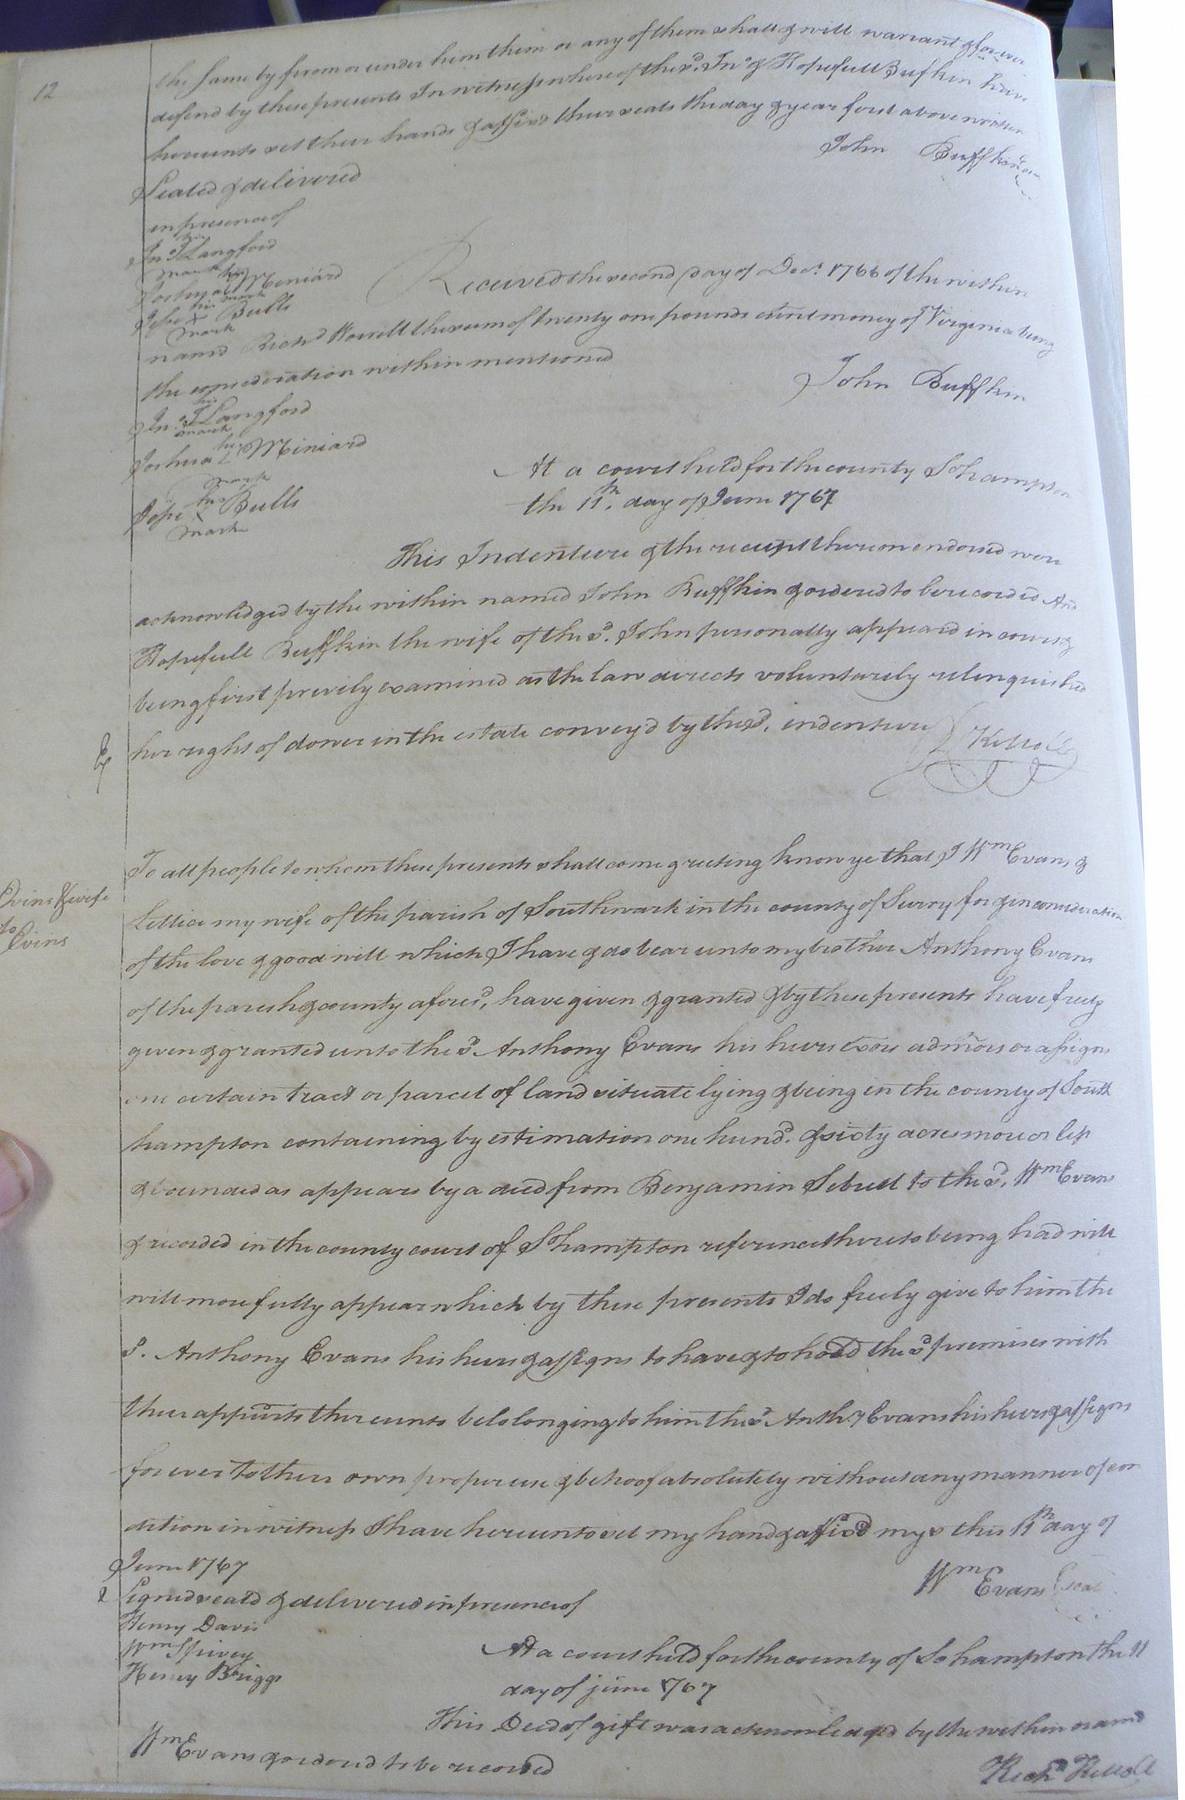 12
the same by from or under him them or any of them shall & will warrant & forever
defend by these presents In witness whereof the sd. Jno. & Hopefull Bufkin have
hereunto set their hands & affixd their seals the day & year first above written
John Buffkin
Sealed & delivered
in presence of
Jno. his Langford
mark
his Miniard
mark
his Bulls
mark
Received the second day of Decr. 1766 of the within
namd Richd Howell the sum of twenty one pounds current money of Virginia being
the consideration within mentioned
John Buffkin
Jno. his Langford
mark
Joshua his Miniard
mark
his Bulls
mark
At a court held for the county Sohampton
the 11th. day of June 1767
This Indenture & the receipt thereon endorsed were
acknowledged by the within named John Buffkin & ordered to be recorded And
Hopefull Buffkin the wife of the sd. John personally appeard in court &
being first privily examined as the law directs voluntarily relinquished
her right of dower in the estate convey'd by the sd. indenture
Ex
Evins & wife
to
Evins
To all people to whom these presents shall come greeting know ye that I Wm Evans &
Lettice my wife of the parish of Southwark in the county of Surry for & in consideration
of the love & good will which I have & do bear unto my brother Anthony Evans
of the parish & county aforesd, have given & granted & by these presents have freely
given & granted unto the sd. Anthony Evans his heirs Exors admors or assigns
one certain tract or parcel of land situate lying & being in the county of South
hampton containing by estimation one hund. & sixty acres more or less
& bounded as appears by a deed from Benjamin Sebrell to the sd. Wm Evans
& recorded in the county court of Shampton reference thereto being had will
will more fully appear which by these presents I do freely give to him the
sd. Anthony Evans his heirs & assigns to have & to hold the sd premises with
their appurts thereunto belolonging to him the sd Anthy Evans his heirs & assigns
forever to their own proper use & behoof absolutely without any manner of con
dition in witness I have hereunto set my hand & affixd my s this 11th day of
June 1767
Wm Evans Seal
Signed seald & delivered in presence of
Henry Davis
Wm Spivey
Henry Briggs
At a court held for the county of Sohampton the 11
day of june 1767
This Deed of gift was acknowledged by the within named
Wm Evans & ordered to be recorded
Richd Kello